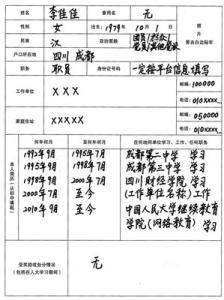 姓名 李佳佳 曾用名 无
性别 女 出生: 1979年 10月 1日 照片
民族 汉 政治面貌 团员/群众/党员/其他党派
户口所在地 四川 成都
职务 职员 身份证号码 一定按平台信息填写
工作单位 XXX 邮编: 100000
电话 010xxxx
家庭住址 XXXXX 邮编: 050000
电话 010xxxx
本人简历(从初中填起)
何年何月 至何年何月 在何地何单位学习、工作、任何职务
1992年9月 1995年7月 成都第二中学 学习
1995年9月 1998年7月 成都第三中学 学习
1996年9月 2000年7月 四川财经学院 学习
2000年7月 至今 (工作单位名称)工作
2010年9月 至今 中国人民大学继续教育
学院(网络教育)学习
受奖惩或处分情况(包括在人大学习期间) 无